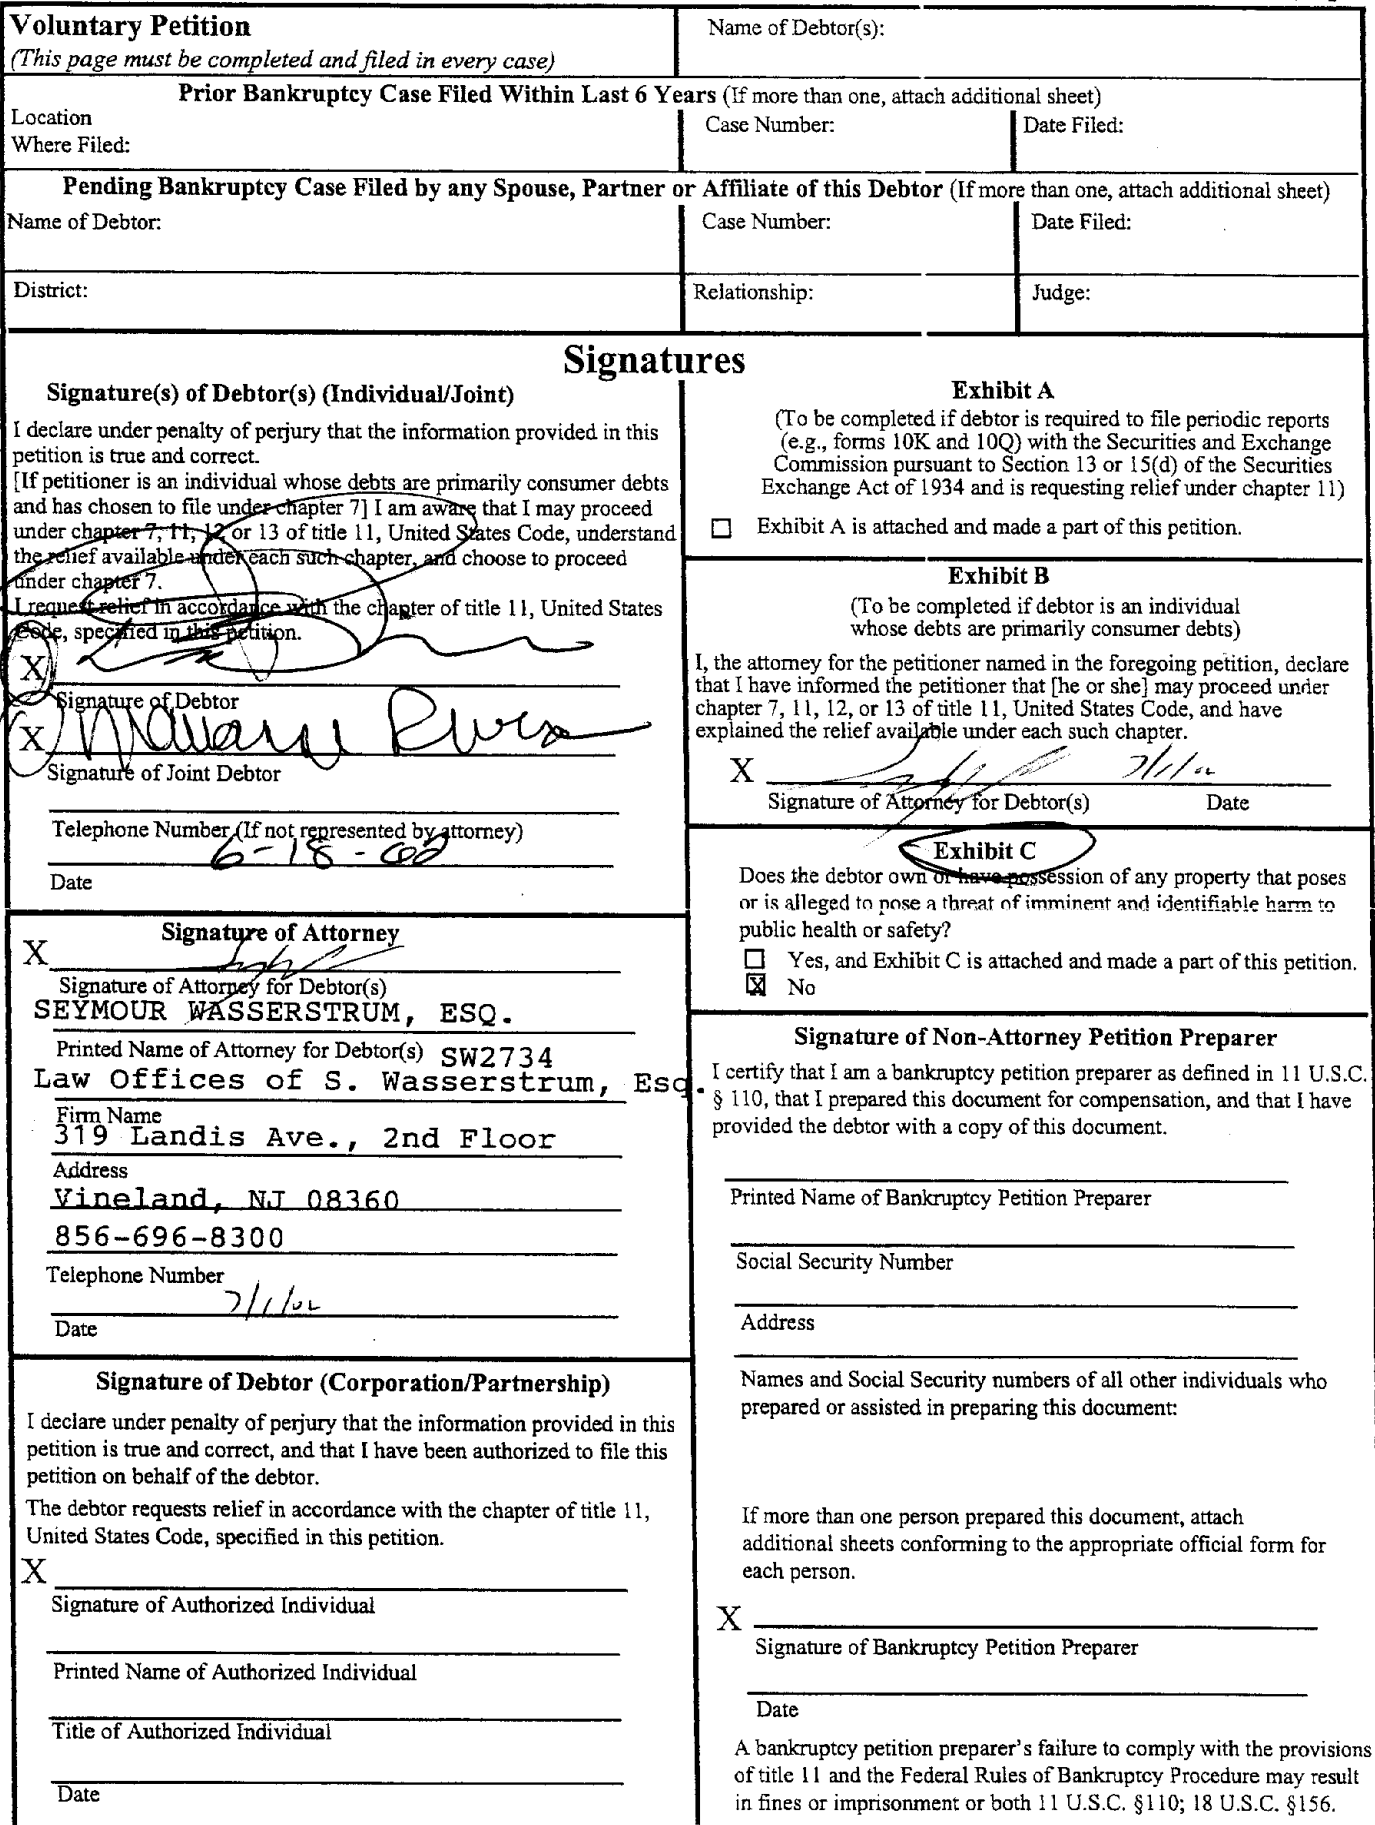 Voluntary Petition
(This page must be completed and filed in every case)
Name of Debtor(s):
Prior Bankruptcy Case Filed Within Last 6 Years (If more than one, attach additional sheet)
Location
Where Filed:
Case Number:
Date Filed:
Pending Bankruptcy Case Filed by any Spouse, Partner or Affiliate of this Debtor (If more than one, attach additional sheet)
Name of Debtor:
Case Number:
Date Filed:
District:
Relationship:
Judge:
Signatures
Signature(s) of Debtor(s) (Individual/Joint)
I declare under penalty of perjury that the information provided in this
petition is true and correct.
[If petitioner is an individual whose debts are primarily consumer debts
and has chosen to file under chapter 7] I am aware that I may proceed
under chapter 7, 11, 12 or 13 of title 11, United States Code, understand
the relief available under each such chapter, and choose to proceed
under chapter 7.
I request relief in accordance with the chapter of title 11, United States
Code, specified in this petition.
X
Signature of Debtor
X
Signature of Joint Debtor
Telephone Number (If not represented by attorney)
6-18-02
Date
Signature of Attorney
X
Signature of Attorney for Debtor(s)
SEYMOUR WASSERSTRUM, ESQ.
Printed Name of Attorney for Debtor(s) SW2734
Law Offices of S. Wasserstrum, Esq.
Firm Name
319 Landis Ave., 2nd Floor
Address
Vineland, NJ 08360
856-696-8300
Telephone Number
7/1/02
Date
Signature of Debtor (Corporation/Partnership)
I declare under penalty of perjury that the information provided in this
petition is true and correct, and that I have been authorized to file this
petition on behalf of the debtor.
The debtor requests relief in accordance with the chapter of title 11,
United States Code, specified in this petition.
X
Signature of Authorized Individual
Printed Name of Authorized Individual
Title of Authorized Individual
Date
Exhibit A
(To be completed if debtor is required to file periodic reports
(e.g., forms 10K and 10Q) with the Securities and Exchange
Commission pursuant to Section 13 or 15(d) of the Securities
Exchange Act of 1934 and is requesting relief under chapter 11)
☐ Exhibit A is attached and made a part of this petition.
Exhibit B
(To be completed if debtor is an individual
whose debts are primarily consumer debts)
I, the attorney for the petitioner named in the foregoing petition, declare
that I have informed the petitioner that [he or she] may proceed under
chapter 7, 11, 12, or 13 of title 11, United States Code, and have
explained the relief available under each such chapter.
X 7/1/02
Signature of Attorney for Debtor(s) Date
Exhibit C
Does the debtor own or have possession of any property that poses
or is alleged to pose a threat of imminent and identifiable harm to
public health or safety?
☐ Yes, and Exhibit C is attached and made a part of this petition.
☒ No
Signature of Non-Attorney Petition Preparer
I certify that I am a bankruptcy petition preparer as defined in 11 U.S.C.
§ 110, that I prepared this document for compensation, and that I have
provided the debtor with a copy of this document.
Printed Name of Bankruptcy Petition Preparer
Social Security Number
Address
Names and Social Security numbers of all other individuals who
prepared or assisted in preparing this document:
If more than one person prepared this document, attach
additional sheets conforming to the appropriate official form for
each person.
X
Signature of Bankruptcy Petition Preparer
Date
A bankruptcy petition preparer's failure to comply with the provisions
of title 11 and the Federal Rules of Bankruptcy Procedure may result
in fines or imprisonment or both 11 U.S.C. §110; 18 U.S.C. §156.